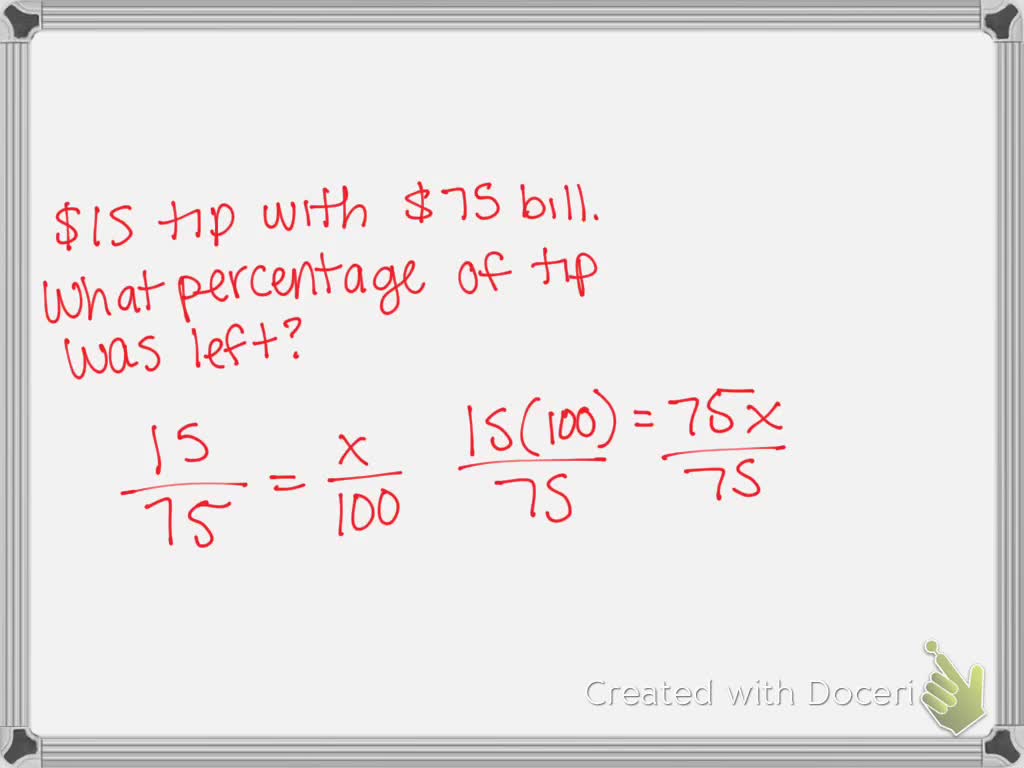 $15 tip with $75 bill.
What percentage of tip
was left?
15/75 = x/100 15(100)/75 = 75x/75
Created with Doceri